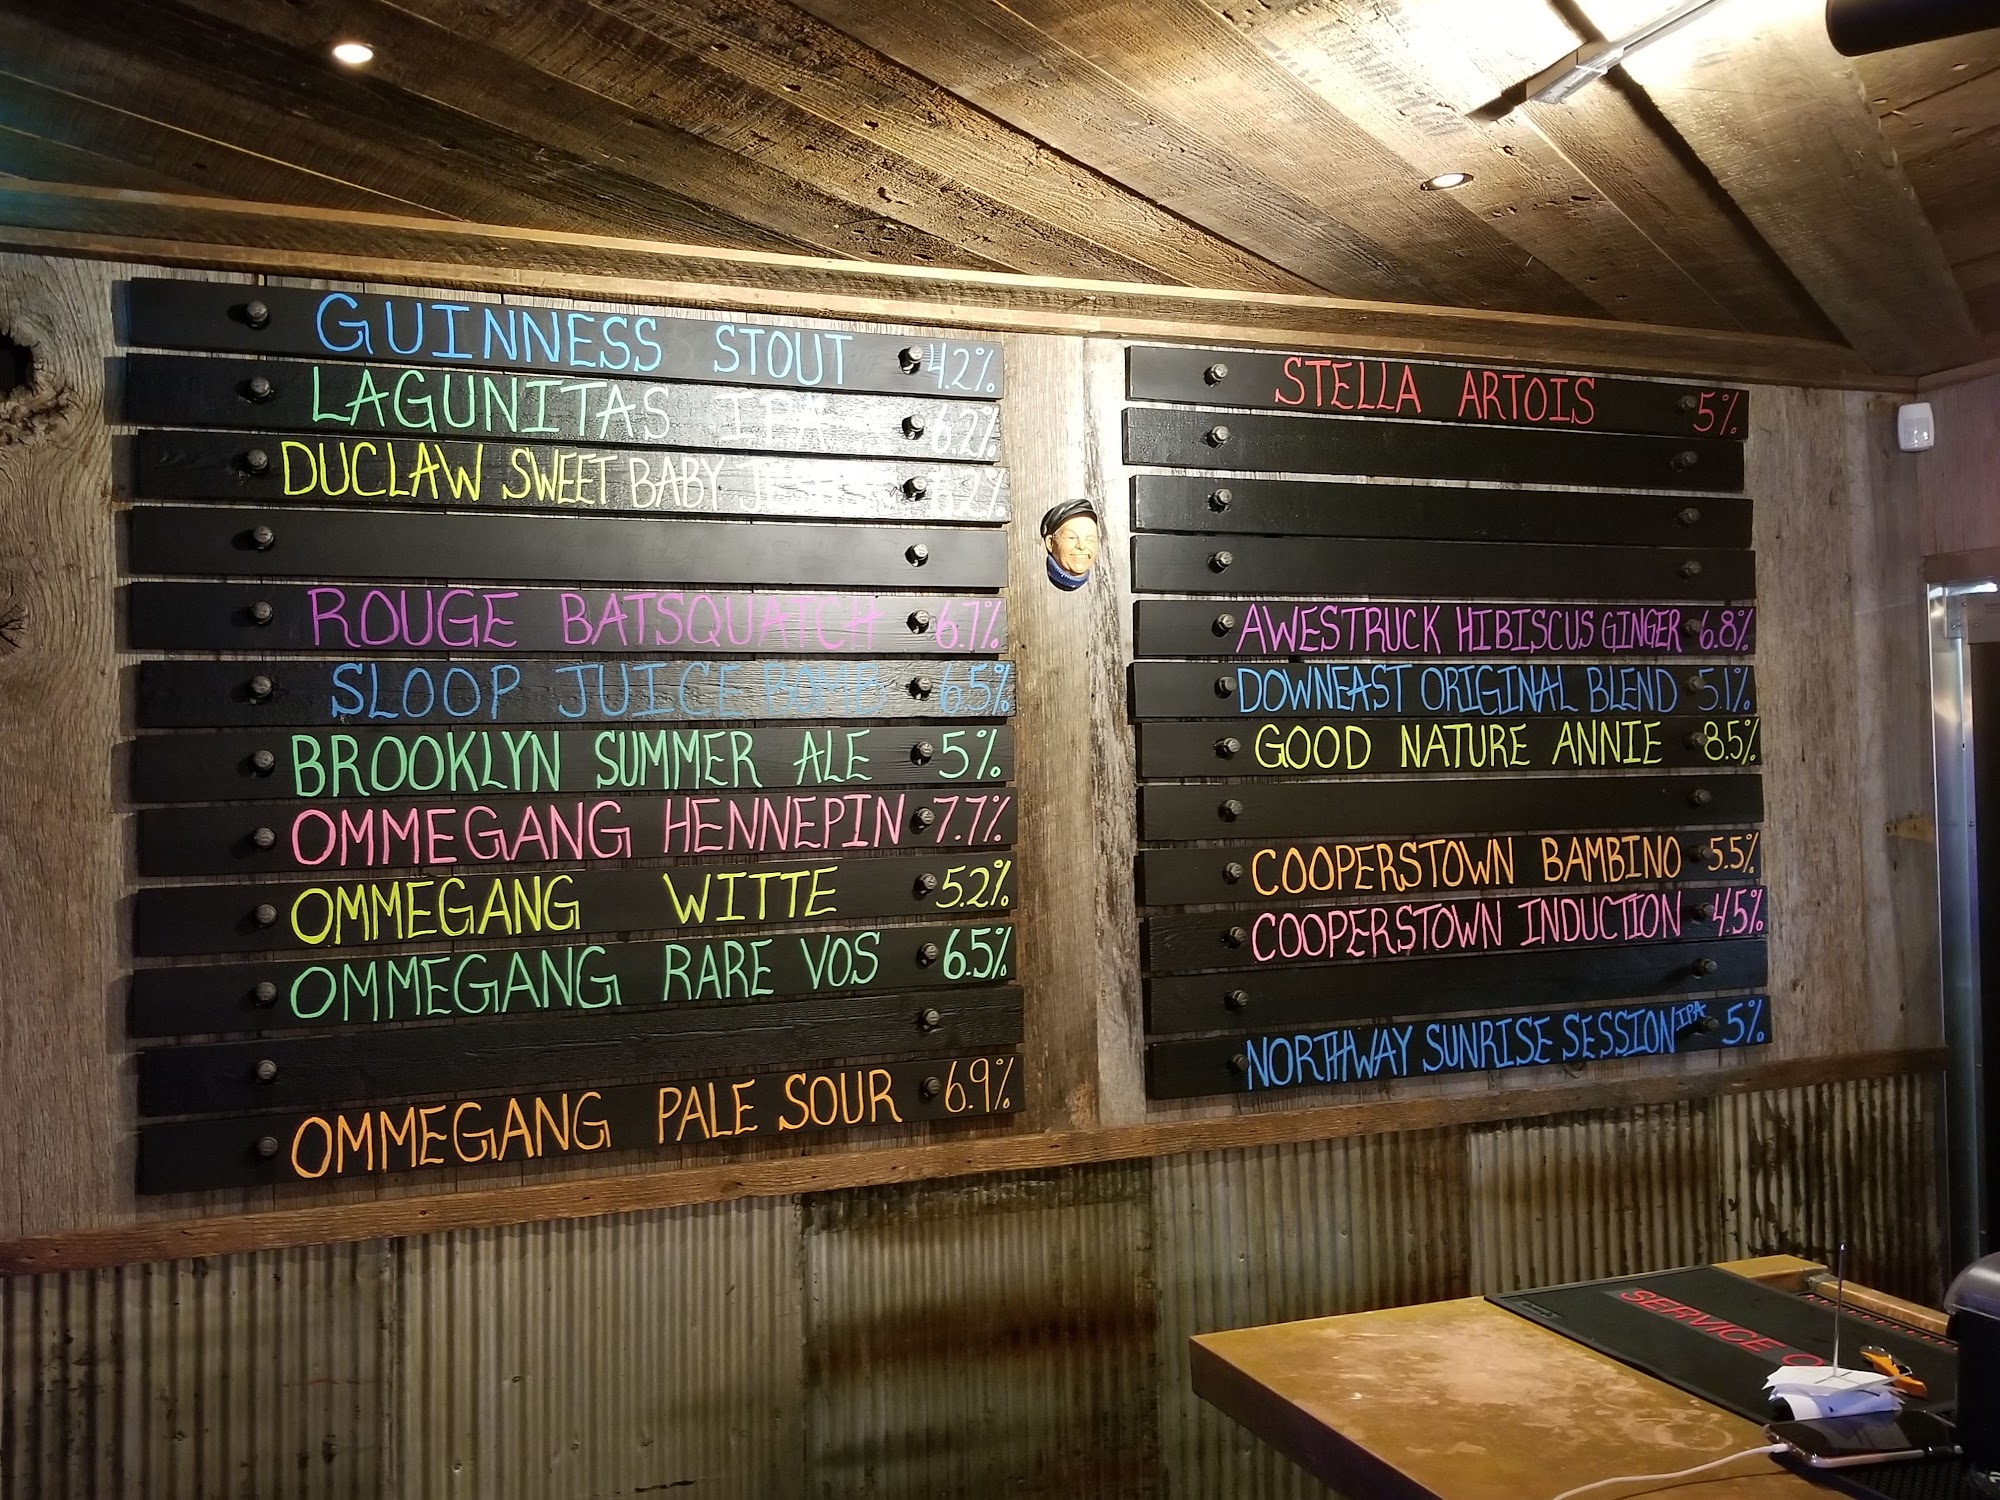 GUINNESS STOUT 4.2%
LAGUNITAS IPA 6.2%
DUCLAW SWEET BABY
ROUGE BATSQUATCH 6.7%
SLOOP JUICE BOMB 6.5%
BROOKLYN SUMMER ALE 5%
OMMEGANG HENNEPIN 7.7%
OMMEGANG WITTE 5.2%
OMMEGANG RARE VOS 6.5%
OMMEGANG PALE SOUR 6.9%
STELLA ARTOIS 5%
AWESTRUCK HIBISCUS GINGER 6.8%
DOWNEAST ORIGINAL BLEND 5.1%
GOOD NATURE ANNIE 8.5%
COOPERSTOWN BAMBINO 5.5%
COOPERSTOWN INDUCTION 4.5%
NORTHWAY SUNRISE SESSION IPA 5%
SERVICE